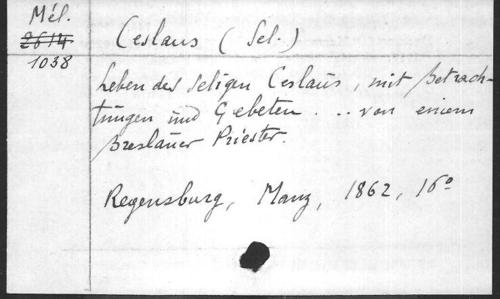 Mél.
2614
1038
Ceslaus (Sel.)
Leben des seligen Ceslaus, mit Betrach-
tungen und Gebeten . .. von einem
Breslauer Priester.
Regensburg, Manz, 1862, 16°